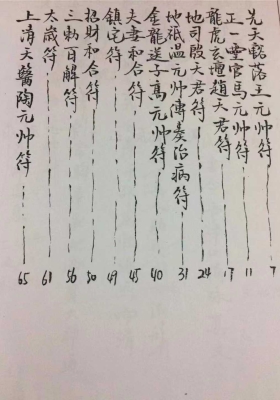 先天豁落王元帅符 7
正一霊官馬元帅符 11
龍虎玄壇趙天君符 17
地司殷天君符 24
地祇温元帅治病符 31
金龍送子高元帅符 40
夫妻和合符 45
鎮宅符 49
招財和合符 50
三勅百解符 56
太歲符 61
上清天醫陶元帅符 65